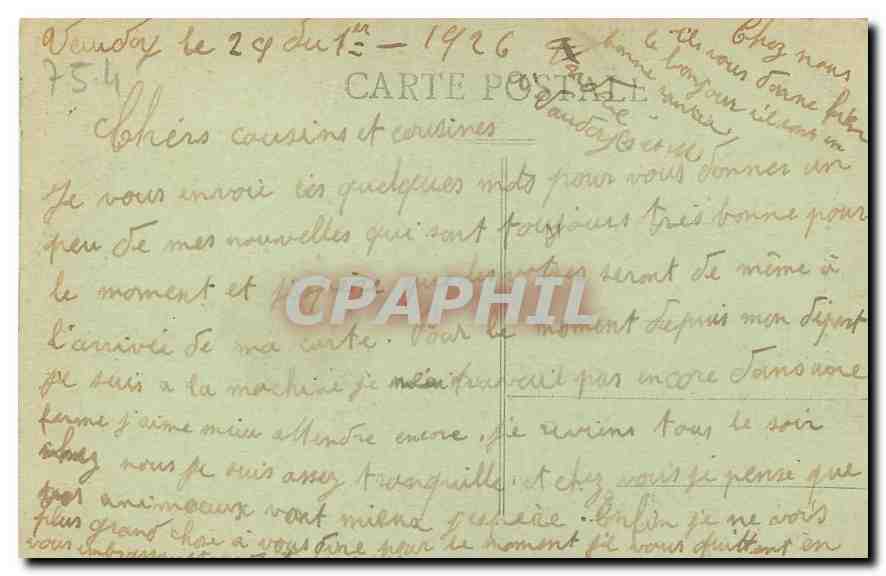 Vaudoy le 29 du 1er — 1926
754
CARTE POSTALE
Chez nous
ils vous donne bien
le bonjour
bonne
Vaudoy
Chérs cousins et cousines
Je vous envoie ces quelques mots pour vous donner un
peu de mes nouvelles qui sont toujours très bonne pour
le moment et j'espère que les votres seront de même à
l'arrivée de ma carte. Pour le moment depuis mon départ
je suis a la machine je travail pas encore dans une
ferme j'aime mieu attendre encore. je reviens tous le soir
chez nous je suis assez tranquille. et chez vous je pense que
animaeux vont mieux. Enfin je ne vois
plus grand chose à vous dire pour le moment je vous quittent en
vous
CPAPHIL